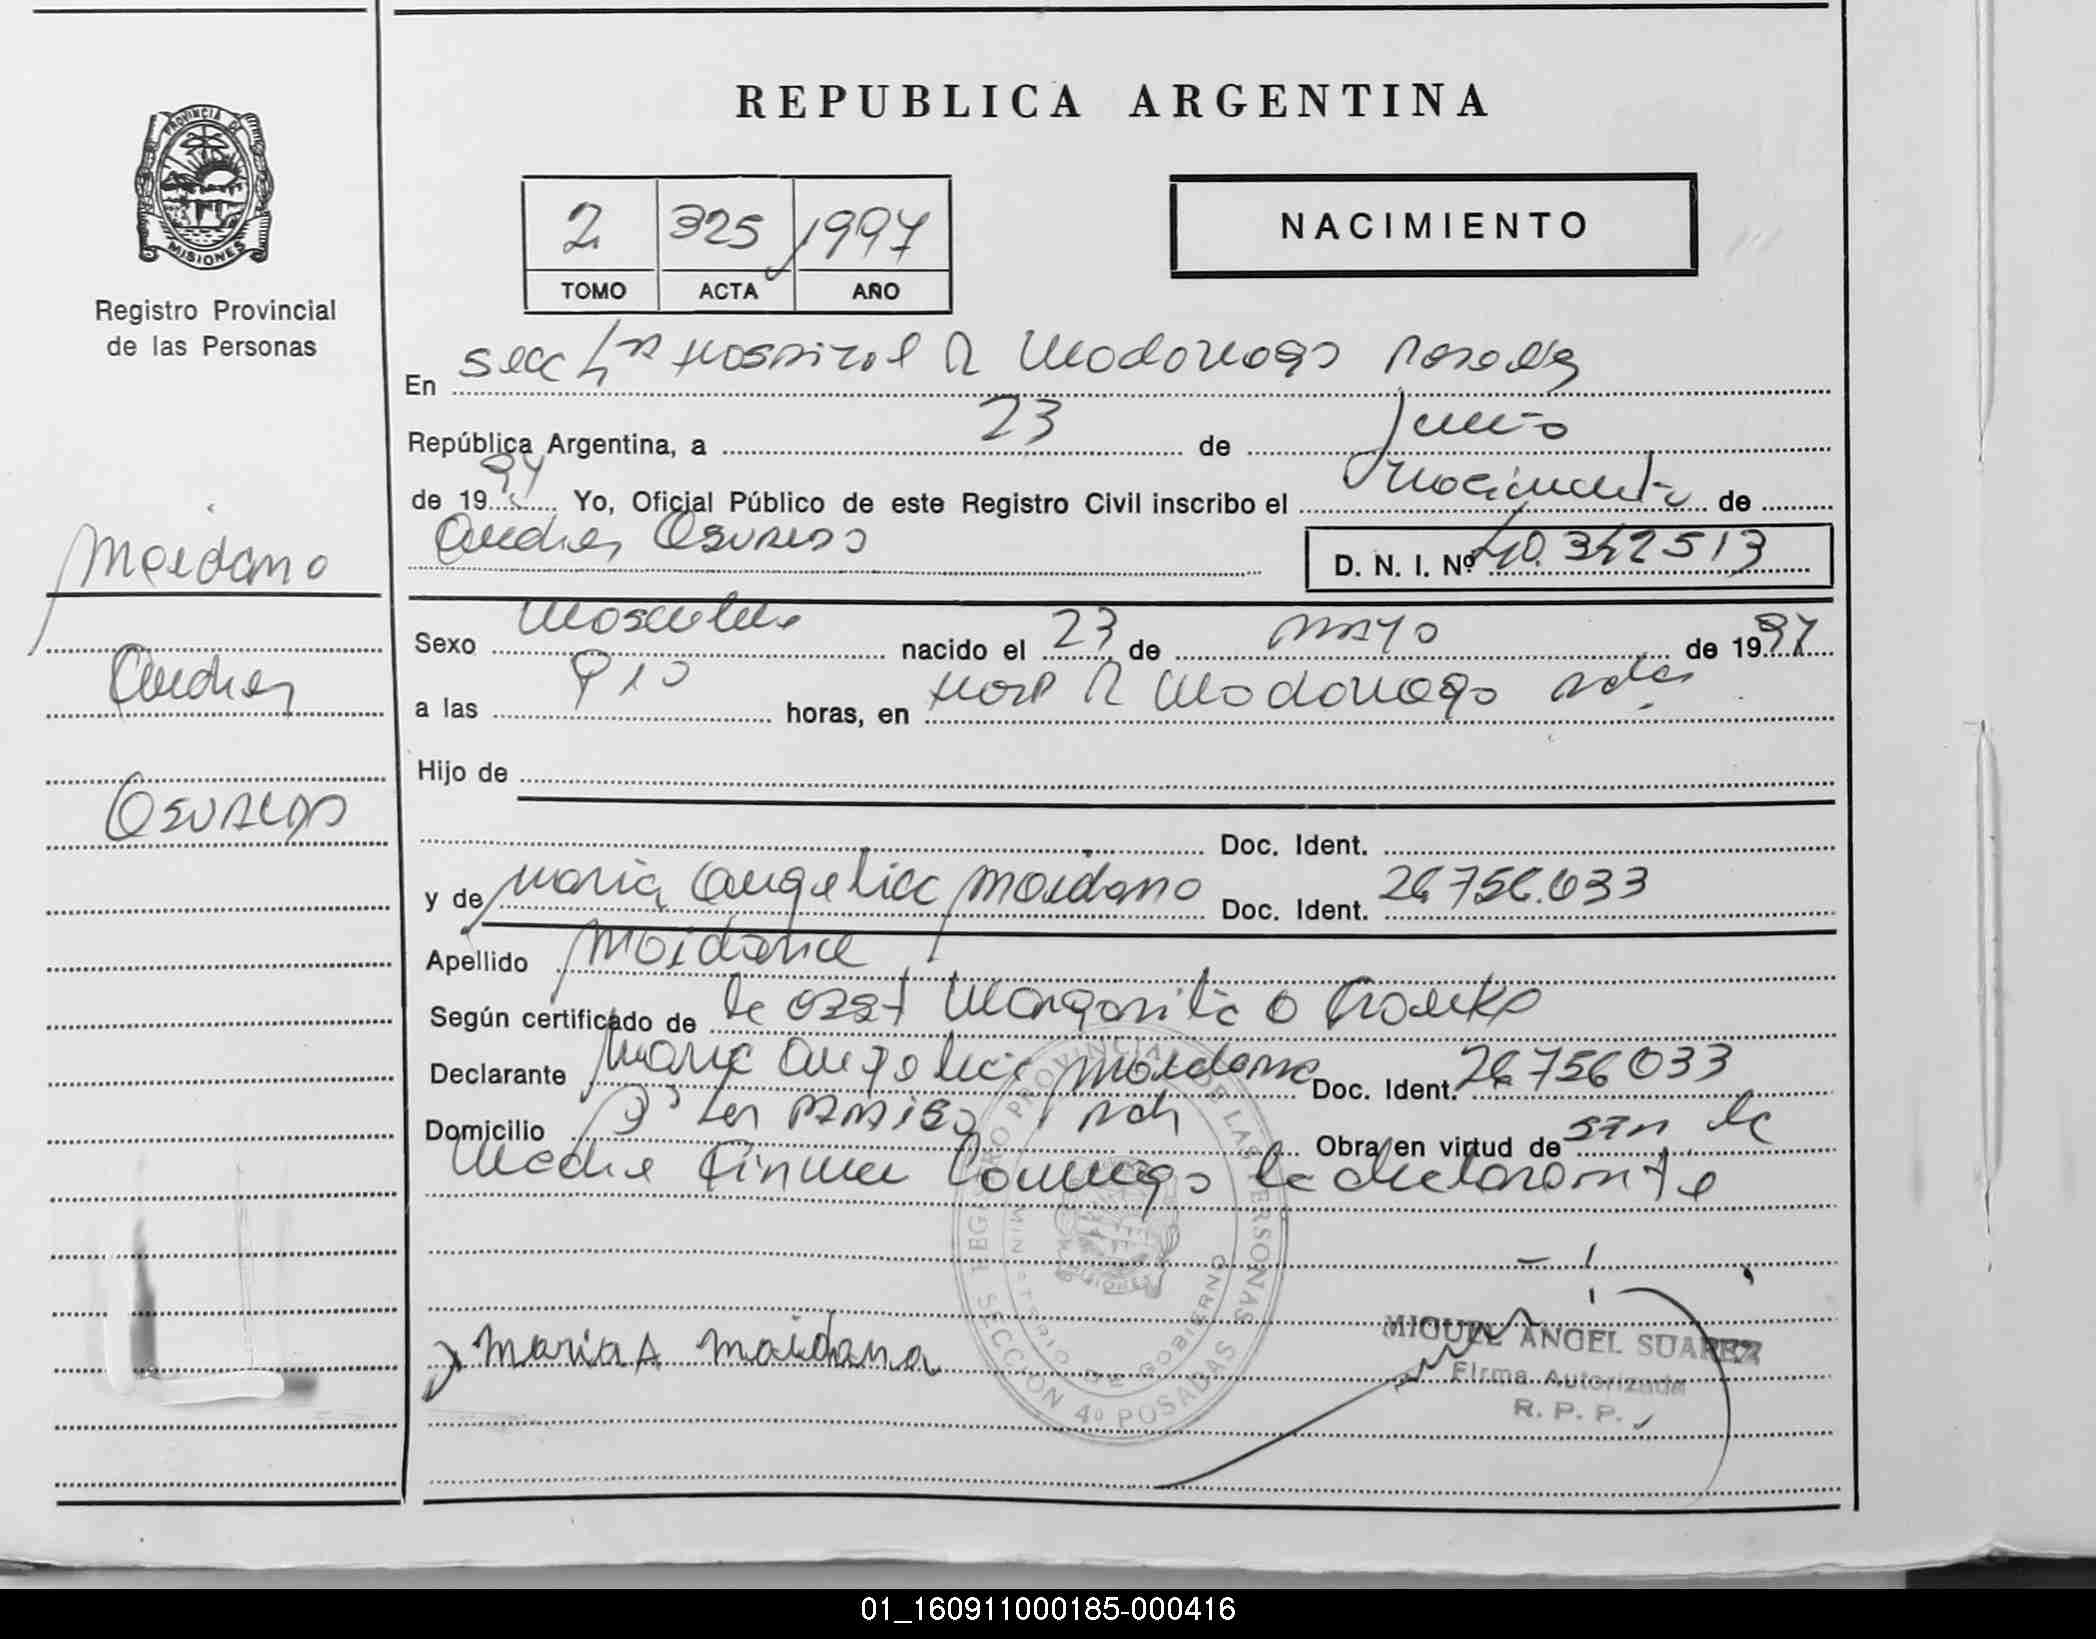 REPUBLICA ARGENTINA
PROVINCIA DE MISIONES
Registro Provincial
de las Personas
2 325 1997
TOMO ACTA AÑO
NACIMIENTO
En Secc 4ta Hospital R Madariaga Posadas
República Argentina, a 23 de Junio
de 1997 Yo, Oficial Público de este Registro Civil inscribo el Nacimiento de
Andres Osvaldo
D. N. I. Nº 40.342513
Maidana
Andres
Osvaldo
Sexo Masculino nacido el 23 de mayo de 1997
a las 910 horas, en Hosp R Madariaga Pdas
Hijo de
Doc. Ident.
y de Maria Angelica Maidana Doc. Ident. 26756.033
Apellido Maidana
Según certificado de la Obst Margarita O
Declarante Maria Angelica Maidana Doc. Ident. 26756033
Domicilio Obra en virtud de ser la
Madre Firma Conmigo la declarante
REGISTRO PROVINCIAL DE LAS PERSONAS
MINISTERIO DE GOBIERNO
SECCION 4º POSADAS
Maria A maidana
MIGUEL ANGEL SUAREZ
Firma Autorizada
R. P. P.
01_160911000185-000416